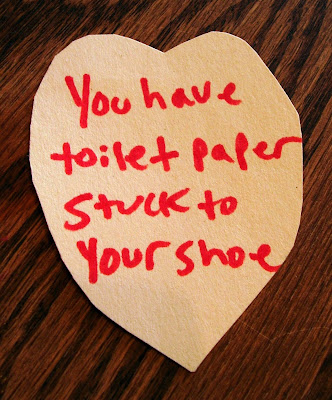 You have
toilet paper
stuck to
your shoe